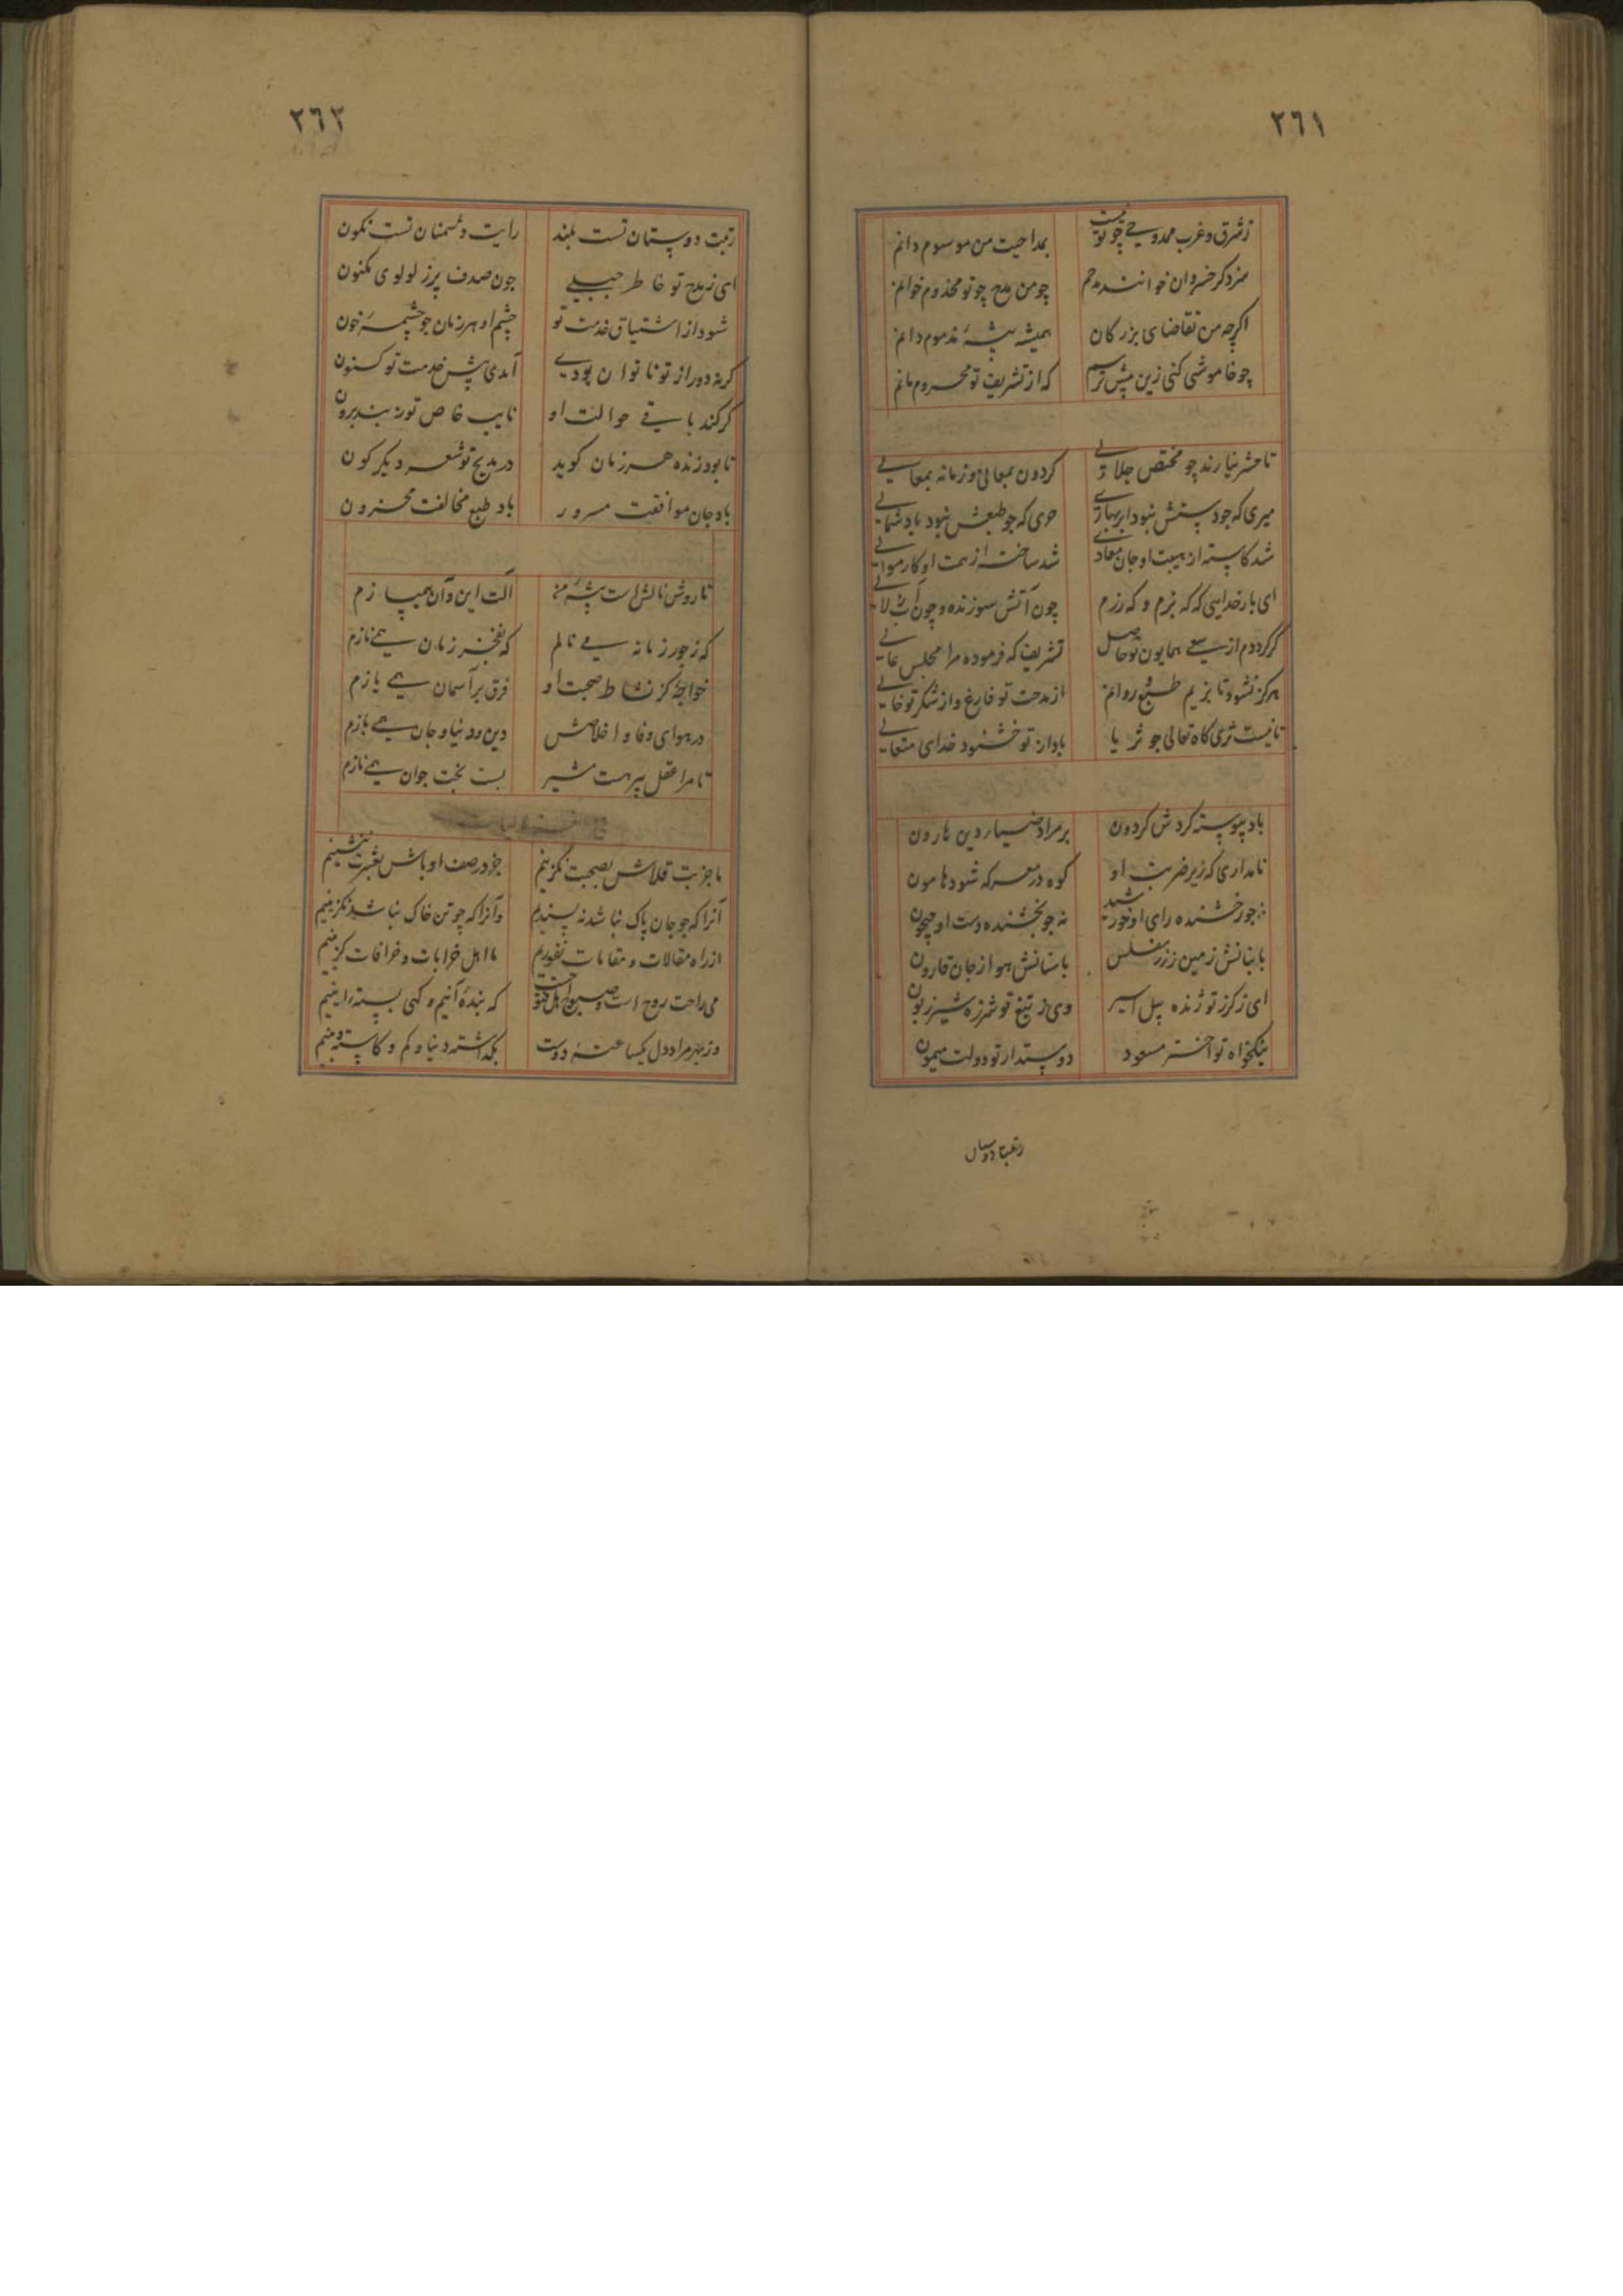 ٢٦١
ز شرق و غرب ممدوحی چو تو نیست بمداحیت من موسوم دانم
سزد کر خسروان خوانند مدحم چو من مدح چو تو مخدوم خوانم
اکرچه من تقاضای بزرکان همیشه پیشهٔ مذموم دانم
چو خاموشی کنی زین پیش ترسم که از تشریف تو محروم مانم
تا حشر نیارند چو مختص جلالی کردون بمعالی و زمانه بمعالی
میری که جو دستش نبود ابر بهاری حری که جو طبعش نبود باد شمالی
شد کاسته از هیبت او جان معادی شد ساخته از همت او کار موالی
ای بار خدایی که که بزم و که رزم چون آتش سوزنده و چون آب زلالی
کر کردم از سعی همایون تو حاصل تشریف که فرموده مرا مجلس عالی
هرکز نشود تا بزیم طبع و روانم از مدحت تو فارغ و از شکر تو خالی
تا نیست ثری کاه تعالی جو ثریا باد از تو خشنود خدای متعالی
باد پیوسته کردش کردون بر مراد ضیاء دین هارون
نامداری که زیر ضربت او کوه در معرکه شود هامون
نه جو رخشنده رای او خورشید نه جو بخشنده دست او جیحون
با بنانش زمین ز زر مفلس با سنانش هوا ز جان قارون
ای ز کرز تو ژنده پیل اسیر وی ز تیغ تو شرزه شیر زبون
نیکخواه تو اختر مسعود دوستدار تو دولت میمون
رتبت دوستان
٢٦٢
رتبت دوستان تست بلند رایت دشمنان تست نکون
ای ز مدح تو خاطر جبلی جون صدف پر ز لولوی مکنون
شود از اشتیاق خدمت تو چشم او هر زمان جو چشمهٔ خون
کر نه دور از تو ناتوان بودی آمدی پیش خدمت تو کنون
کر کند باقی حوالت او نایب خاص تو ز بند برون
تا بود زنده هر زمان کوید در مدیح تو شعر دیکر کون
باد جان موافقت مسرور باد طبع مخالفت محزون
تا روش نالش است پیشهٔ من آلت این و آن همی سازم
که ز جور زمانه می نالم که بفخر زمان همی نازم
خواجهٔ کز نشاط صحبت او فرق بر آسمان همی یازم
در هوای وفا و اخلاصش دین و دنیا و جان همی بازم
تا مرا عقل پیر هست مشیر بست بخت جوان همی نازم
ما جز بت قلاش بصحبت نکزینیم جز در صف اوباش بعشرت ننشینیم
آنرا که جو جان پاک نباشد نه پسندیم وآنرا که چو تن خاک نباشد نکزینیم
از راه مقالات و مقامات نفوریم ما اهل خرابات و خرافات کزینیم
می راحت روح است و صبوح اهل فتوحست که بندهٔ آنیم و کهی بستهٔ اینیم
وز بهر مراد دل یکساعتهٔ دوست بکذاشته دنیا و کم و کاستهٔ دینیم